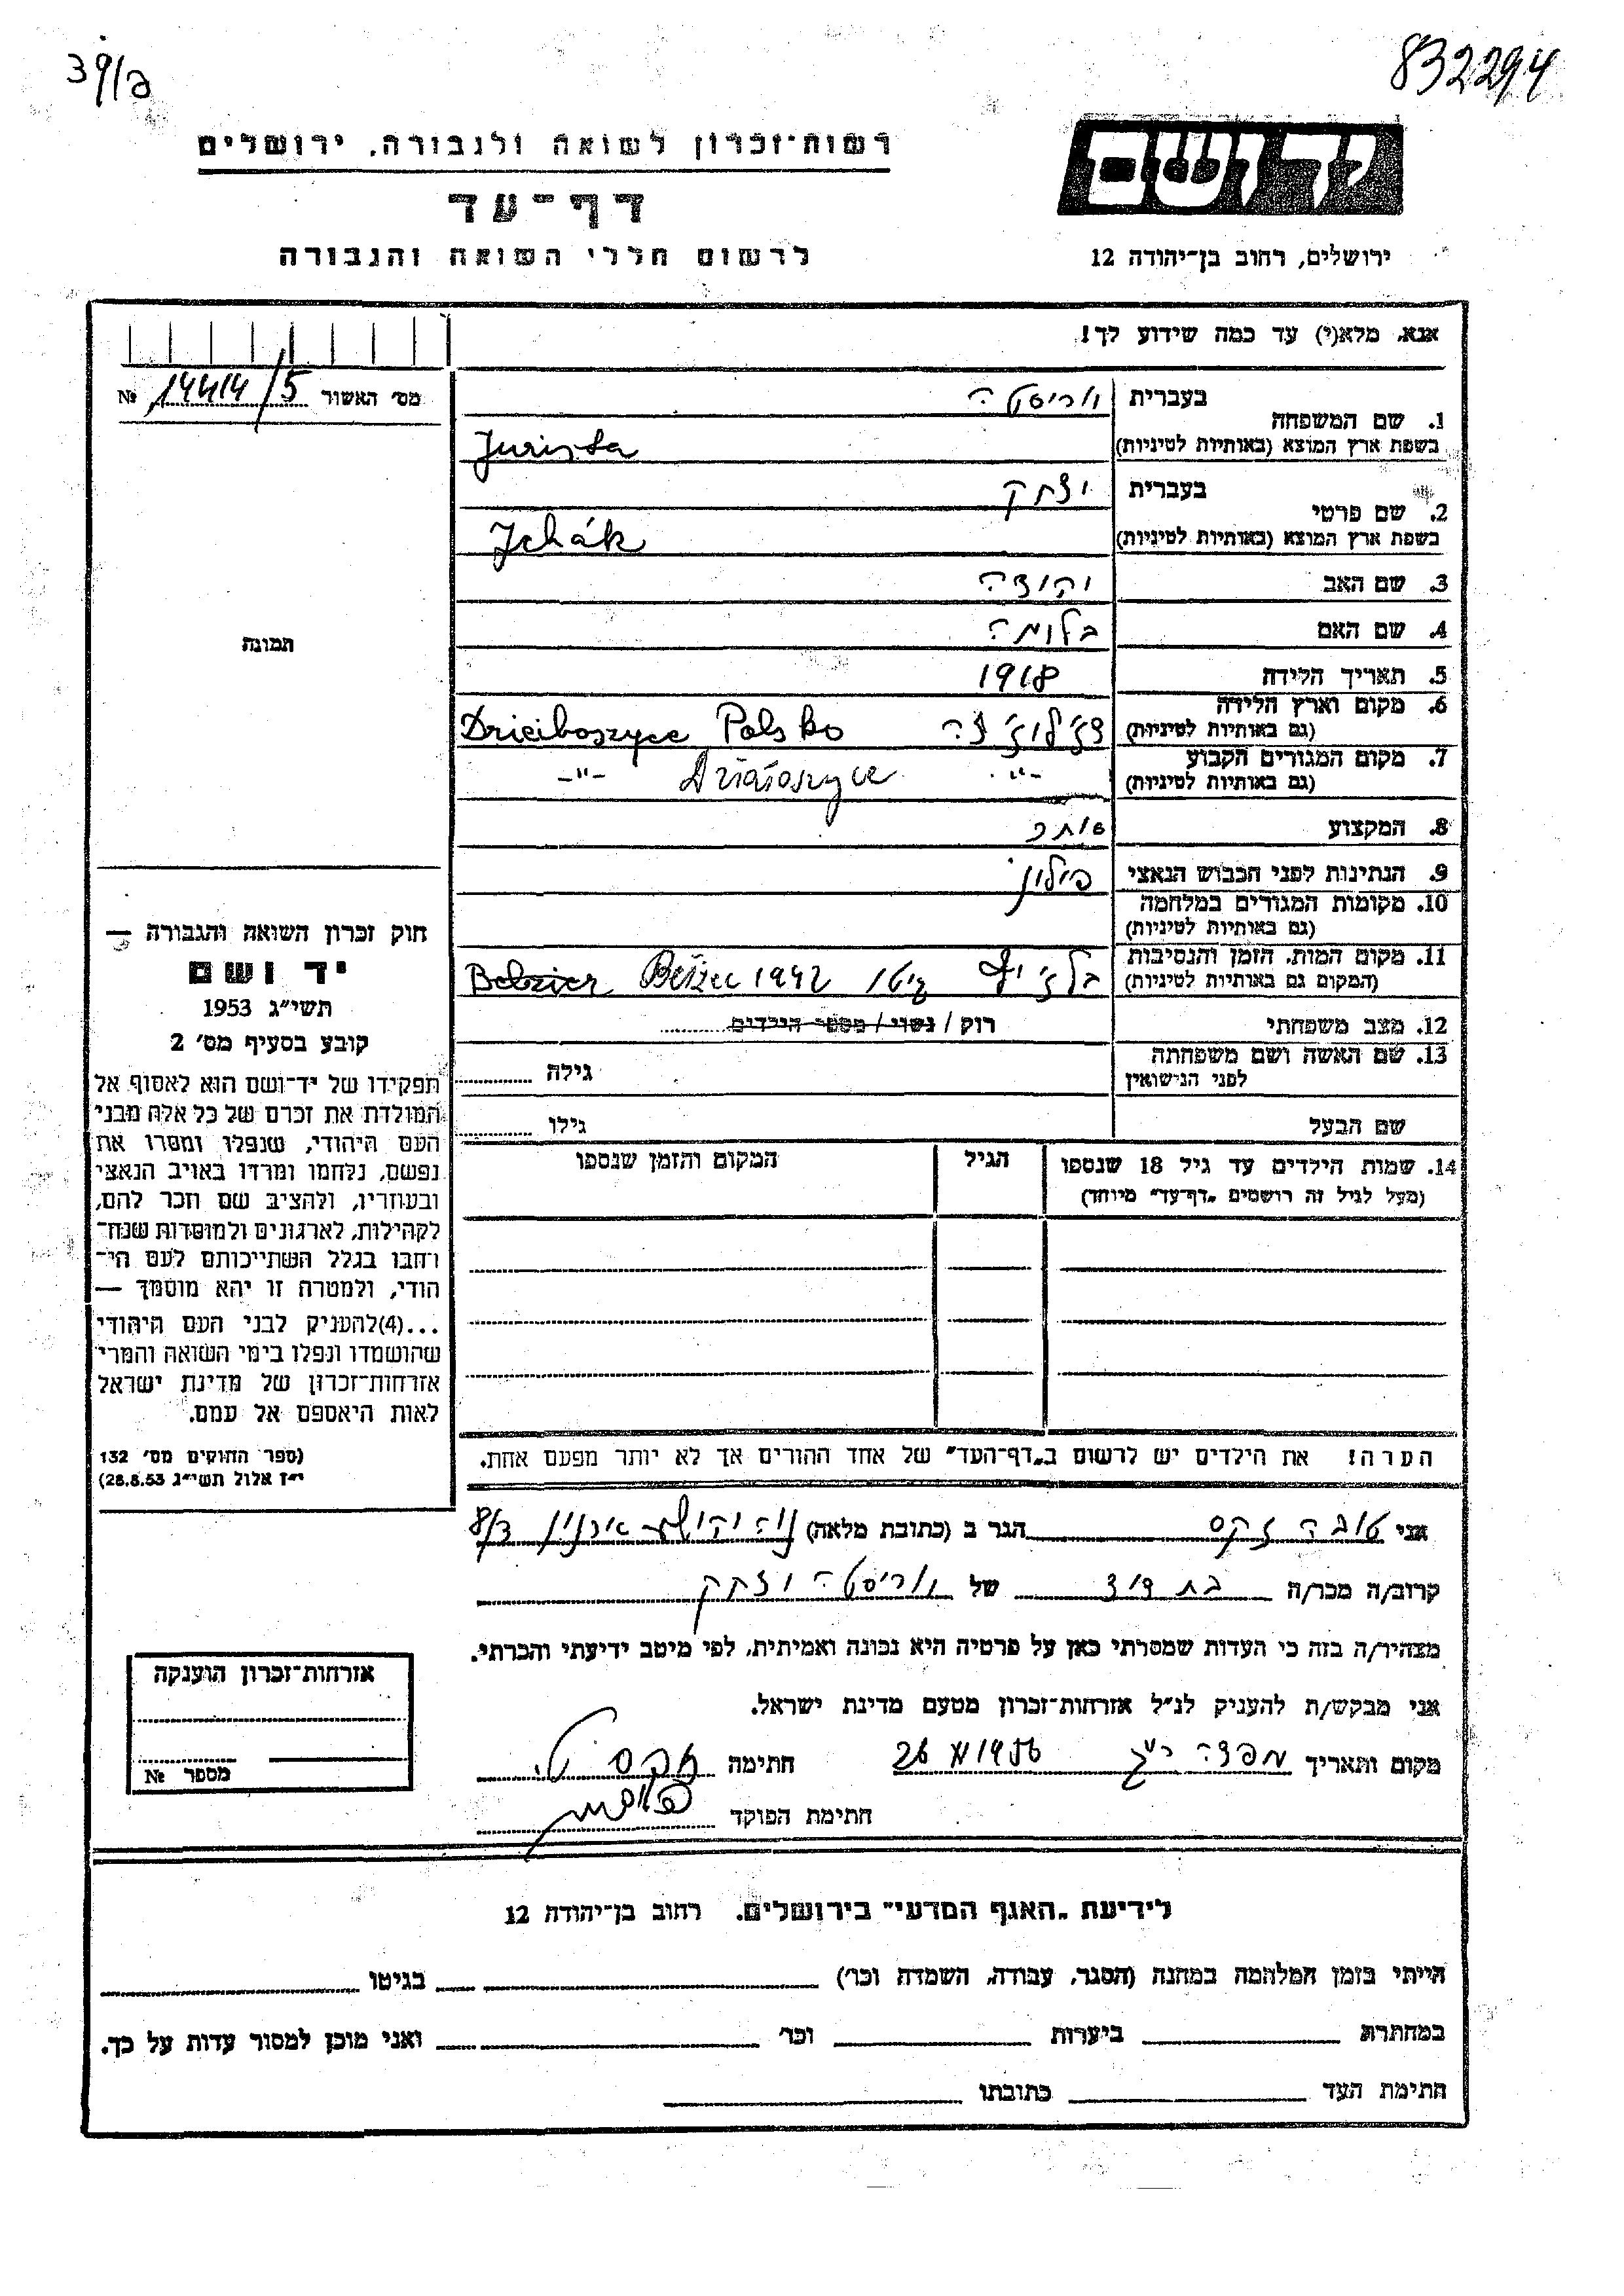 39/ד
832294
רשות־זכרון לשואה ולגבורה, ירושלים
דף־עד
לרשום חללי השואה והגבורה
יד ושם
ירושלים, רחוב בן־יהודה 12
אנא, מלא(י) עד כמה שידוע לך!
מס׳ האשור 14414/5 №
1. שם המשפחה
בעברית יוריסטה
בשפת ארץ המוצא (באותיות לטיניות) Jurista
2. שם פרטי
בעברית יצחק
בשפת ארץ המוצא (באותיות לטיניות) Jchák
3. שם האב יהודה
4. שם האם בלומה
5. תאריך הלידה 1918
6. מקום וארץ הלידה
(גם באותיות לטיניות) Polsko Dzieiboszyce
7. מקום המגורים הקבוע
(גם באותיות לטיניות) -"- Działoszyce -"-
8. המקצוע סוחר
9. הנתינות לפני הכבוש הנאצי פולין
10. מקומות המגורים במלחמה
(גם באותיות לטיניות)
11. מקום המות, הזמן והנסיבות
(המקום גם באותיות לטיניות) Bełzec 1942 Belzier
12. מצב משפחתי רוק / נשוי / מספר הילדים
13. שם האשה ושם משפחתה
לפני הנישואין גילה
שם הבעל גילו
14. שמות הילדים עד גיל 18 שנספו
(מעל לגיל זה רושמים „דף־עד״ מיוחד)
הגיל
המקום והזמן שנספו
הערה! את הילדים יש לרשום ב„דף־העד״ של אחד ההורים אך לא יותר מפעם אחת.
תמונה
חוק זכרון השואה והגבורה —
יד ושם
תשי״ג 1953
קובע בסעיף מס׳ 2
תפקידו של יד־ושם הוא לאסוף אל
המולדת את זכרם של כל אלה מבני
העם היהודי, שנפלו ומסרו את
נפשם, נלחמו ומרדו באויב הנאצי
ובעוזריו, ולהציב שם וזכר להם,
לקהילות, לארגונים ולמוסדות שנח־
רחבו בגלל השתייכותם לעם הי־
הודי, ולמטרה זו יהא מוסמך —
...(4)להעניק לבני העם היהודי
שהושמדו ונפלו בימי השואה והמרי
אזרחות־זכרון של מדינת ישראל
לאות היאספם אל עמם.
(ספר החוקים מס׳ 132
י״ז אלול תשי״ג 28.8.53)
אני טובה זקס הגר ב (כתובת מלאה)
קרוב/ה מכר/ה בת דוד של יוריסטה יצחק
מצהיר/ה בזה כי העדות שמסרתי כאן על פרטיה היא נכונה ואמיתית, לפי מיטב ידיעתי והכרתי.
אני מבקש/ת להעניק לנ״ל אזרחות־זכרון מטעם מדינת ישראל.
מקום ותאריך 26 1956 חתימה זקס ט.
חתימת הפוקד
אזרחות־זכרון הוענקה
מספר №
לידיעת „האגף המדעי״ בירושלים, רחוב בן־יהודה 12
הייתי בזמן המלחמה במחנה (הסגר, עבודה, השמדה וכו׳) בגיטו
במחתרת ביערות וכו׳ ואני מוכן למסור עדות על כך.
חתימת העד כתובתו